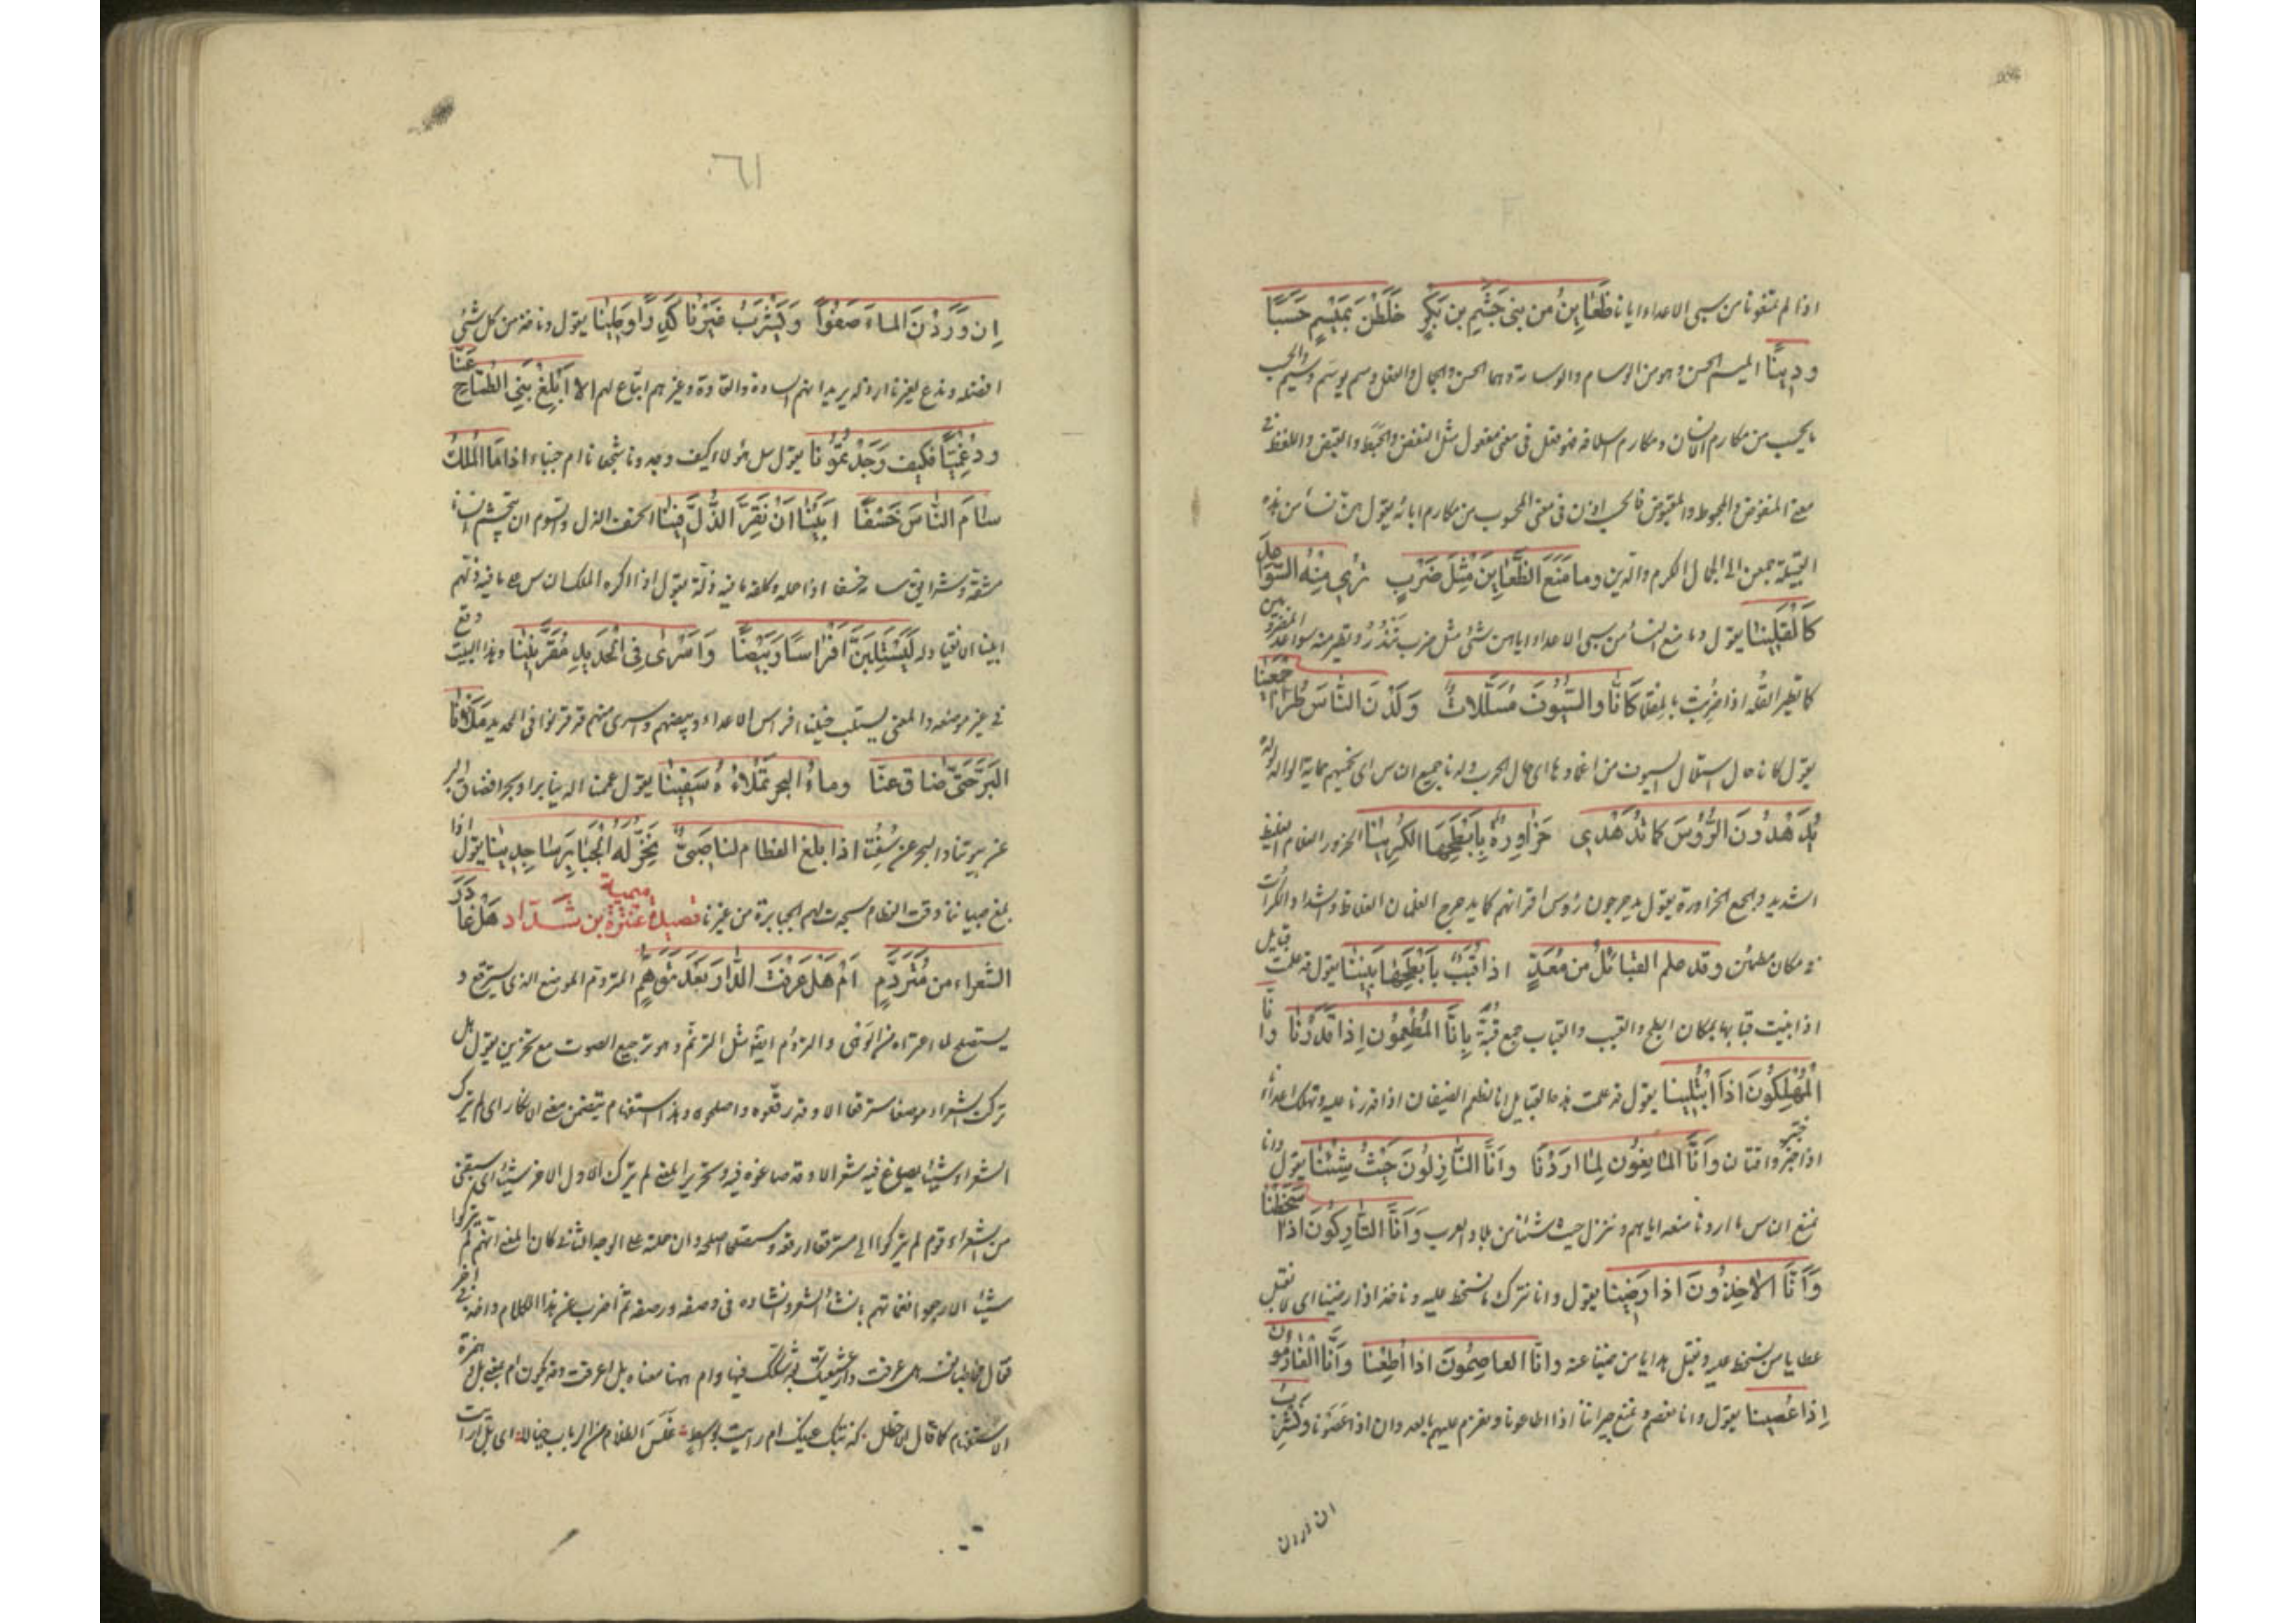 اذا لم تمنعونا من سبى الاعداء ايانا ظَعَايِنُ من بنى جَشَمِ بن بَكْرٍ خَلَطْنَ بمَيْسَمٍ حَسَبًا
ودِينًا الميسم الحسن وهو من الوسام والوسامة وهما الحسن والجمال والفعل وسم يوسم وسيم والحسب
ما يحسب من مكارم الانسان ومكارم اسلافه فهو فعل فى معنى مفعول مثل النفض والخبط والقبض واللفظ فى
معنى المنفوض والمخبوط والمقبوض فالحسب اذن فى معنى المحسوب من مكارم ابائه يقول هن نساء من هذه
القبيلة جمعن الى الجمال الكرم والدين وما مَنَعَ الظَّعَايِنَ مِثْلَ ضَرْبٍ تَرٰى مِنْهُ السَّوَاعِدَ
كَالْقُلِينَا يقول وما منع النساء من سبى الاعداء اياهن شئ مثل ضرب تندر وتطير منه سواعد المضروبين
كما تطير القلة اذا ضربت بالمقلاء كَأَنَّا والسُّيُوفُ مُسَلَّلاتٌ وَلَدْنَ النَّاسَ طُرًّا اجمَعِينَا
يقول كانا حال استلال السيوف من اغمادها اى حال الحرب ولدنا جميع الناس اى نحميهم حماية الوالد ولده
يُدَهْدُونَ الرُّؤُسَ كما تُدَهْدِى حَزَاوِرةٌ بِأَبْطَحِهَا الكُرِينَا الحزور الغلام الغليظ
الشديد والجمع الحزاورة يقول يدحرجون رؤس اقرانهم كما يدحرج الغلمان الغلاظ الشداد الكرات
فى مكان مطمئن وقد علم القبائلُ من مَعَدٍّ اذا قُبَبٌ بأبْطَحِهَا بُنِينَا يقول قد علمت قبايل
اذا بنيت قبابها بمكان ابطح والقبب والقباب جمع قُبَّة بِانَّا المُطْعِمُونَ اِذا قَدَرْنَا وانَّا
المُهْلِكُونَ اذَا ابْتُلِينا يقول قد علمت هذه القبايل انا نطعم الضيفان اذا قدرنا عليه ونهلك اعداءنا
اذا اختبروا قتالنا وَانَّا المانِعُونَ لِمَا ارَدْنَا وأنَّا النَّازِلُونَ حَيْثُ شِئْنَا يقول وانا
نمنع الناس ما اردنا منعه اياهم وننزل حيث شئنا من بلاد العرب وَأَنَّا التَّارِكُونَ اذا سَخِطْنَا
وَأَنَّا الاخِذُونَ اذا رَضِينَا يقول وانا نترك ما نسخط عليه وناخذ اذا رضينا اى لا نقبل
عطايا من نسخط عليه ونقبل هدايا من رضينا عنه وانَّا العاصِمُونَ اذا أُطِعْنا وأنَّا العَازِمُونَ
إِذا عُصِينا يقول وانا نعصم ونمنع جيراننا اذا اطاعونا ونعزم عليهم بالعدوان اذا عصونا ونَشْرَبُ
٦١
اِن وَرَدْنَ الماءَ صَفْوًا وَيَشْرَبُ غَيْرُنَا كَدِرًا وطِينا يقول وناخذ من كل شئ
افضله وندع لغيرنا ارذله يريد انهم السادة والقادة وغيرهم اتباع لهم الا أَبْلِغْ بَنِى الطَّمَّاحِ عَنَّا
ودُعْمِيًّا فكيف وَجَدْتُمُونا يقول سل هؤلاء كيف وجدونا شجعانا ام جبناء اذا مَا المَلْكُ
سَامَ النَّاسَ خَسْفًا ابَيْنَا انْ نُقِرَّ الذُّلَّ فِينَا الخسف الذل والسوم ان تجشم انسانا
مشقة وشرا يقال سامه خسفا اذا حمله وكلفه ما فيه ذلة يقول اذا اكره الملك الناس على ما فيه ذلهم
ابينا الانقياد له لَيَسْتَلِبَنَّ افْرَاسًا وَبِيضًا وَاَسْرٰى فِى الْحَدِيدِ مُقَرَّنِينَا وقع هذا البيت
فى غير موضعه والمعنى ليستلب خيلنا افراس الاعداء وبيضهم واسرى منهم قد قرنوا فى الحديد مَلَأْنَا
البَرَّ حَتّٰى ضَاقَ عنَّا وماءُ البحرِ نَمْلَاءُهُ سَفِينَا يقول عممنا الدنيا برا وبحرا فضاق البر
عن بيوتنا والبحر عن سُفُننا اذا بلغ الفطام لنا صَبِىٌّ يَخِرُّ لَهُ الْجَبَابِرُ سَاجِدِينَا يقول اذا
بلغ صبياننا وقت الفطام سجدت لهم الجبابرة من غيرنا قصيدة عنترة بن شدّاد ميمية هَلْ غَادَرَ
الشعراء من مُتَرَدَّمٍ اَمْ هَلْ عَرَفْتَ الدَّارَ بَعْدَ تَوَهُّمٍ المتردم الموضع الذى يسترقع و
يستصلح لما اعتراه من الوَهْى والتردم ايضا مثل الترنم وهو ترجيع الصوت مع تحزين يقول هل
ترك الشعراء موضعا مسترقعا الا وقد رقعوه واصلحوه وهذا استفهام يتضمن معنى الانكار اى لم يترك
الشعراء شيئا يصاغ فيه شعر الا وقد صاغوه فيه وتحرير المعنى لم يترك الاول للاخر شيئا اى سبقنى
من الشعراء قوم لم يتركوا لى مسترقعا ارقعه ومستصلحا اصلحه وان حملته على الوجه الثانى كان المعنى انهم لم يتركوا
شيئا الا رجعوا نغماتهم بانشاء الشعر وانشاده فى وصفه ورصفه ثم اضرب عن هذا الكلام واخذ فى اخر
فقال مخاطبا نفسه هل عرفت دار عشيقتك بعد شكك فيها وام ههنا معناه بل اعرفت وقد يكون ام بمعنى بل مع همزة
الاستفهام كما قال الاخطل كذبتك عينك ام رايت بواسط غلس الظلام من الرباب خيالا اى بل ارايت